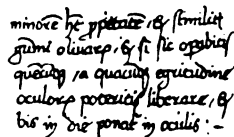 minorē hꝫ ppietatē, & similit̄
gūmi olivarꝫ, & si sic opabis
quēcūqꝫ a quacūqꝫ egritudine
oculorꝫ poteritis liberare, &
bis in die ponat̄ in oculis ·~